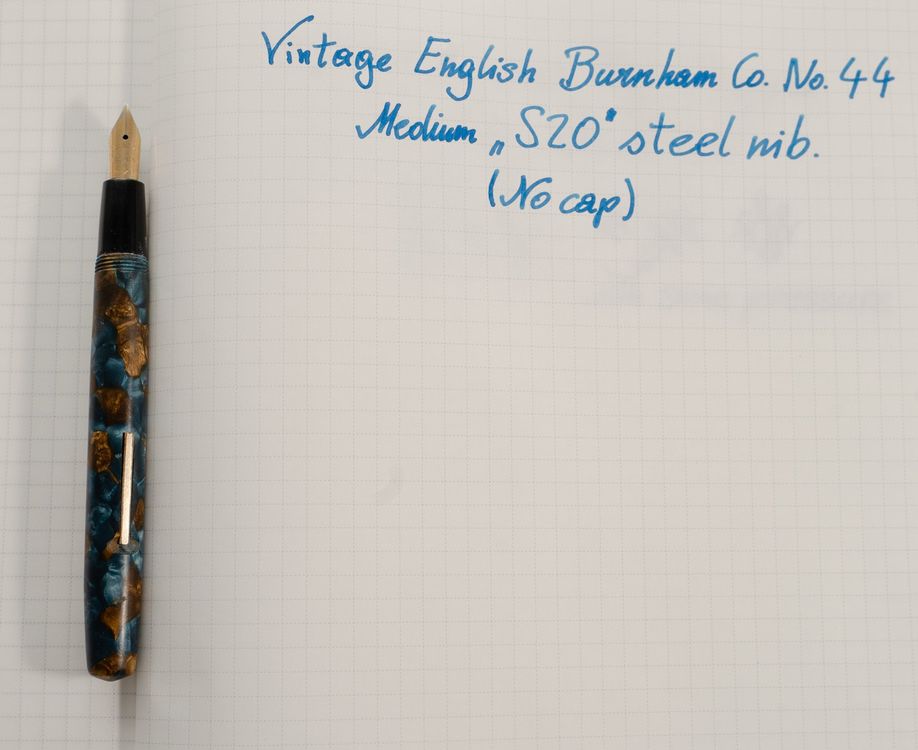 Vintage English Burnham Co. No. 44
Medium „S20" steel nib.
(No cap)